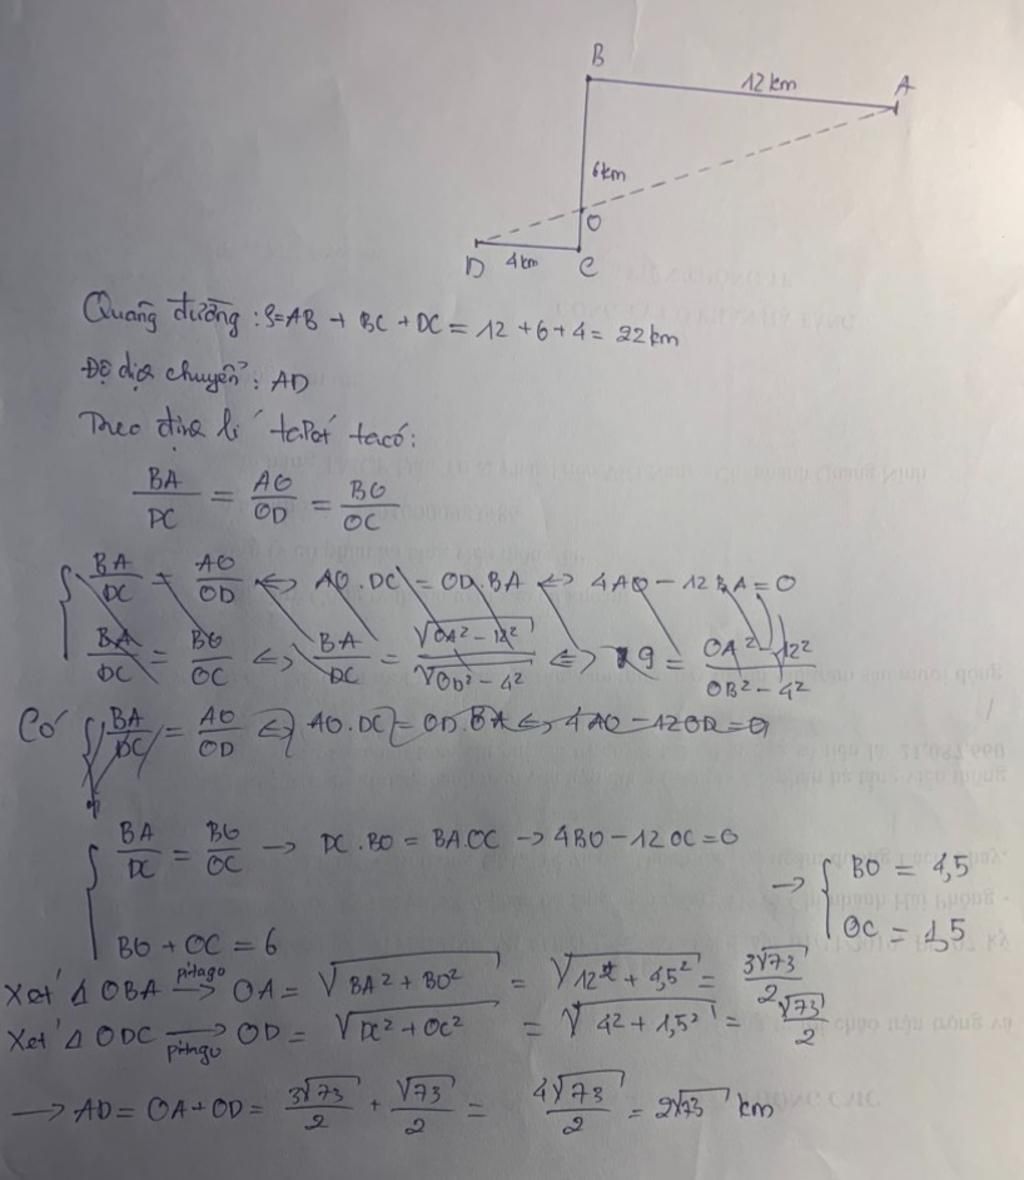 B
12 km
A
6km
O
D
4 km
C
Quãng đường : S=AB + BC + DC = 12 + 6 + 4 = 22 km
Độ dịch chuyển : AD
Theo định lí talét ta có :
BA/DC = AO/OD = BO/OC
{ BA/DC = AO/OD <=> AO . DC = OD . BA <=> 4AO - 12BA = 0
BA/DC = BO/OC <=> BA/DC = √(OA² - 12²)/√(OD² - 4²) <=> 9 = (OA² - 12²)/(OB² - 4²)
Có { BA/DC = AO/OD <=> AO . DC = OD . BA <=> 4AO - 12OD = 0
{ BA/DC = BO/OC → DC . BO = BA.OC → 4BO - 12 OC = 0
→ { BO = 4,5
BO + OC = 6
OC = 1,5
Xét Δ OBA pitago → OA = √(BA² + BO²) = √(12² + 4,5²) = 3√73/2
Xét Δ ODC pitago → OD = √(DC² + OC²) = √(4² + 1,5²) = √73/2
→ AD = OA + OD = 3√73/2 + √73/2 = 4√73/2 = 2√73 km